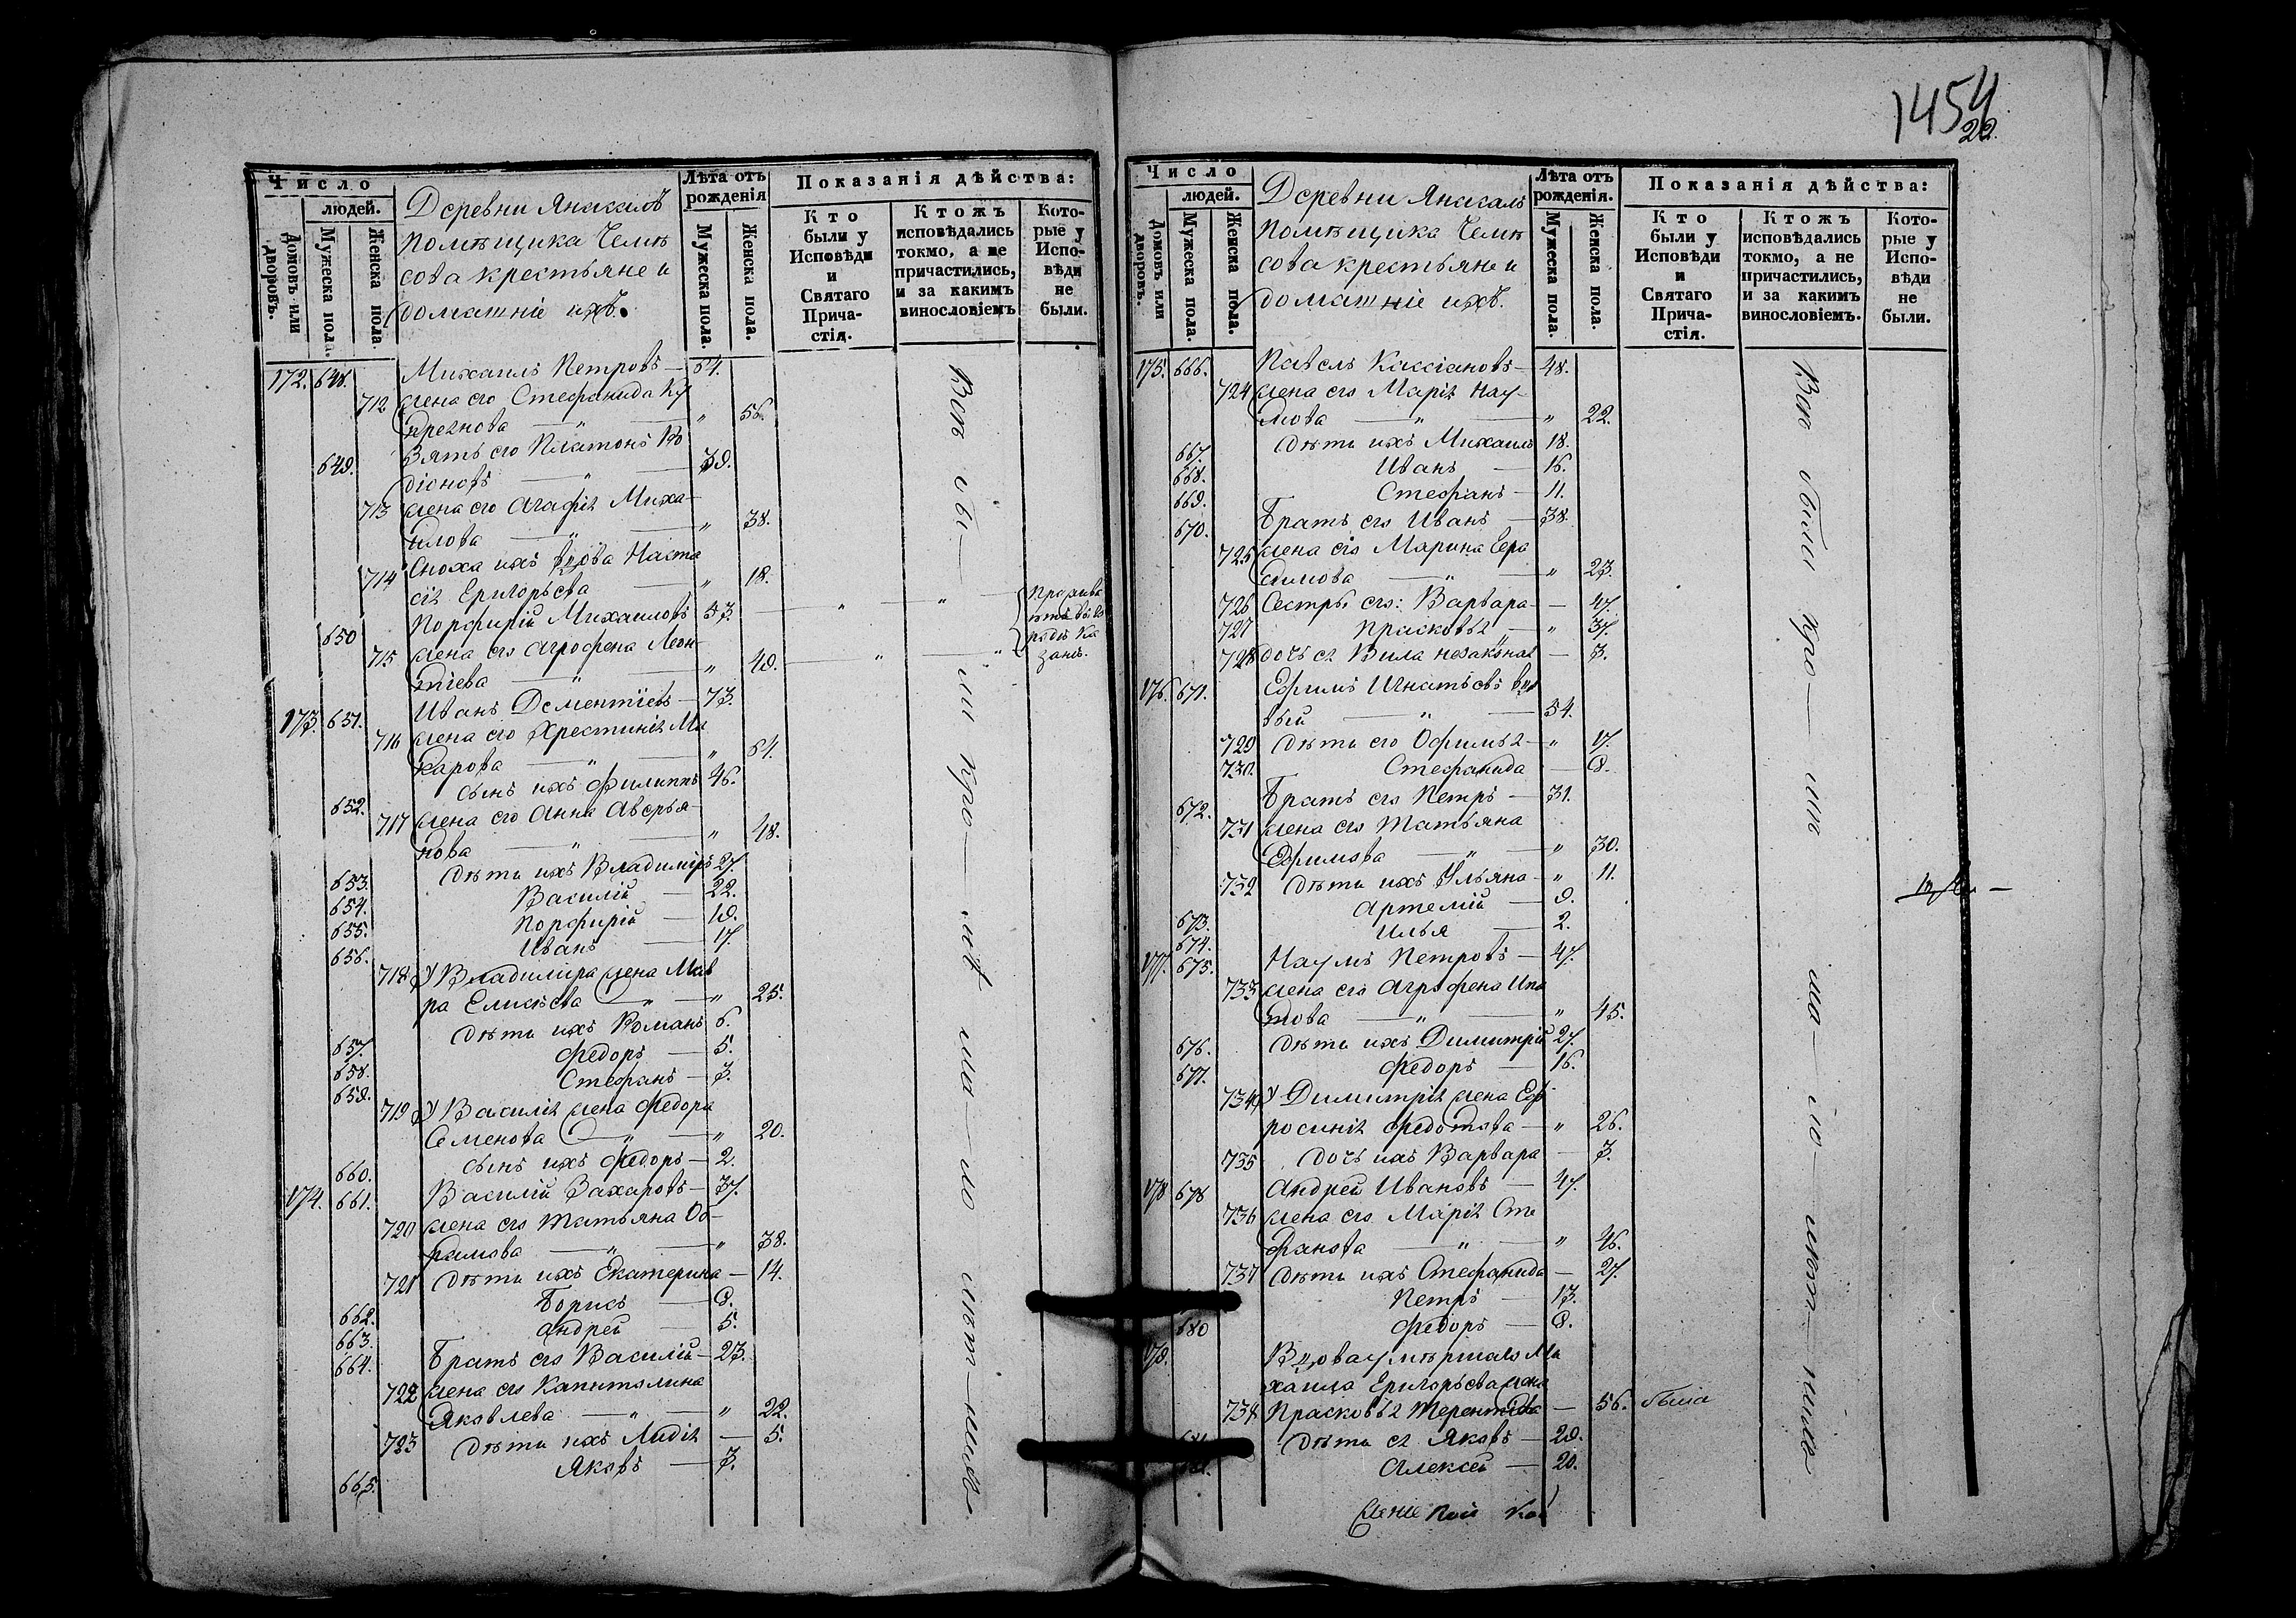 1454
22.
Число
людей.
Домовъ или дворовъ.
Мужеска пола.
Женска пола.
Деревни Янасалъ
помѣщика Чемѣ
сова крестьяне и
домашніе ихъ.
Лѣта отъ рожденія
Мужеска пола.
Женска пола.
Показанія дѣйства:
Кто были у Исповѣди и Святаго Прича-стія.
Ктожъ исповѣдались токмо, а не причастились, и за какимъ винословіемъ
Кото-рые у Испо-вѣди не были.
172. 648. Михаилъ Петровъ — 64.
712 жена его Стефанида Ку
преянова — „ — „ 56.
649. Зять его Платонъ Ро
діоновъ — „ — 39.
713 жена его Агафія Миха-
илова — „ — „ 38.
714 Сноха ихъ вдова Наста
сія Григорьева — „ 18.
650 Порфирій Михаиловъ 53. — „ — „ —
715 жена его Агрофена Леон-
тіева — „ — „ 49. — „ — „
Прожива
ютъ въ го
родѣ Ка
зани.
173. 651. Иванъ Дементіевъ — 73.
716 жена его Хрестинія Ма
карова — „ — „ 64.
652. сынъ ихъ Филиппъ 46.
717 жена его Анна Аверья-
нова — „ — „ 48.
653. дѣти ихъ Владиміръ 27.
654. Василій — 22.
655. Порфирій — 19.
656. Иванъ — 17.
718 У Владиміра жена Мав
ра Елисѣева — „ — „ 25.
657. дѣти ихъ Романъ 6.
658. Федоръ — 5.
659. Стефанъ — 3.
719 У Василія жена Федора
Семенова — „ — „ 20.
660. сынъ ихъ Федоръ — 2.
174. 661. Василій Захаровъ — 37.
720 жена его Татьяна
— „ — „ 38.
721 дѣти ихъ Екатерина — 14.
662. Борисъ — 8.
663. Андрей — 5.
664. Братъ его Василій — 23.
722 жена его Капитолина
Яковлева — „ — „ 22.
723 дѣти ихъ Лидія — 5.
665. Яковъ — 3.
Число
людей.
Домовъ или дворовъ.
Мужеска пола.
Женска пола.
Деревни Янасалъ
помѣщика Чемѣ
сова крестьяне и
домашніе ихъ.
Лѣта отъ рожденія.
Мужеска пола.
Женска пола.
Показанія дѣйства:
Кто были у Исповѣди и Святаго Прича-стія.
Ктожъ исповѣдались токмо, а не причастились, и за какимъ винословіемъ.
Кото-рые у Испо-вѣди не были.
175. 666. Павелъ Кассіановъ — 48.
724 жена его Марія Нау-
мова — „ — „ 22.
667. дѣти ихъ Михаилъ 18.
668. Иванъ — 16.
669. Стефанъ — 11.
670. Братъ его Иванъ — 38.
725 жена его Марина Гера
симова — „ — „ 23.
726 Сестры его: Варвара — — 47.
727 Прасковья — „ 37.
728 дочь ея Вила — 3.
176. 671. Ефимъ Игнатьевъ вдо
вый — „ — 54.
729 дѣти его Офимья — „ 17.
730. Стефанида — 8.
672. Братъ его Петръ — 31.
731 жена его Татьяна
Ефимова — „ — „ 30.
732 дѣти ихъ Ульяна — „ 11.
673. Артемій — 9.
674. Илья — 2.
177. 675. Наумъ Петровъ — 47.
733 жена его Агрофена Ипа
това — „ — „ 45.
676. дѣти ихъ Димитрій 27.
677. Федоръ — 16.
734 У Димитрія жена Еф-
росинія Федотова — „ 26.
735 дочь ихъ Варвара — 3.
178 678 Андрей Ивановъ — 47.
736 жена его Марія Сте
фанова — „ — „ 46.
737 дѣти ихъ Стефанида — 27.
Петръ — 13.
680 Федоръ — 8.
179. Вдова умершаго Ми
хаила Григорьева жена
738 Прасковья Терентьева — 56. была
дѣти ея Яковъ — 29.
Алексей — 20.